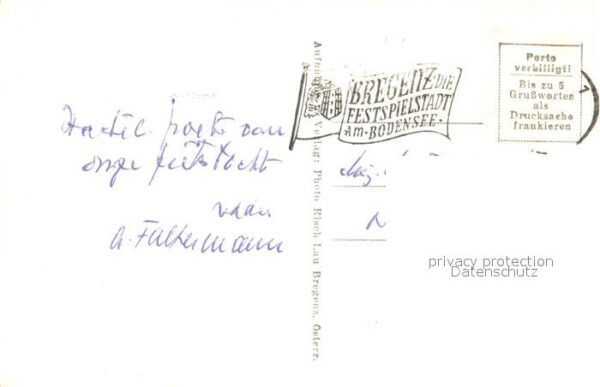 Hartel. groets van
onze fietstocht
van
A. Faltermann
Aufnahme u. Verlag: Photo Risch-Lau Bregenz, Österr.
BREGENZ DIE
FESTSPIELSTADT
·AM·BODENSEE·
Porto
verbilligt!
Bis zu 5
Grußworten
als
Drucksache
frankieren
privacy protection
Datenschutz